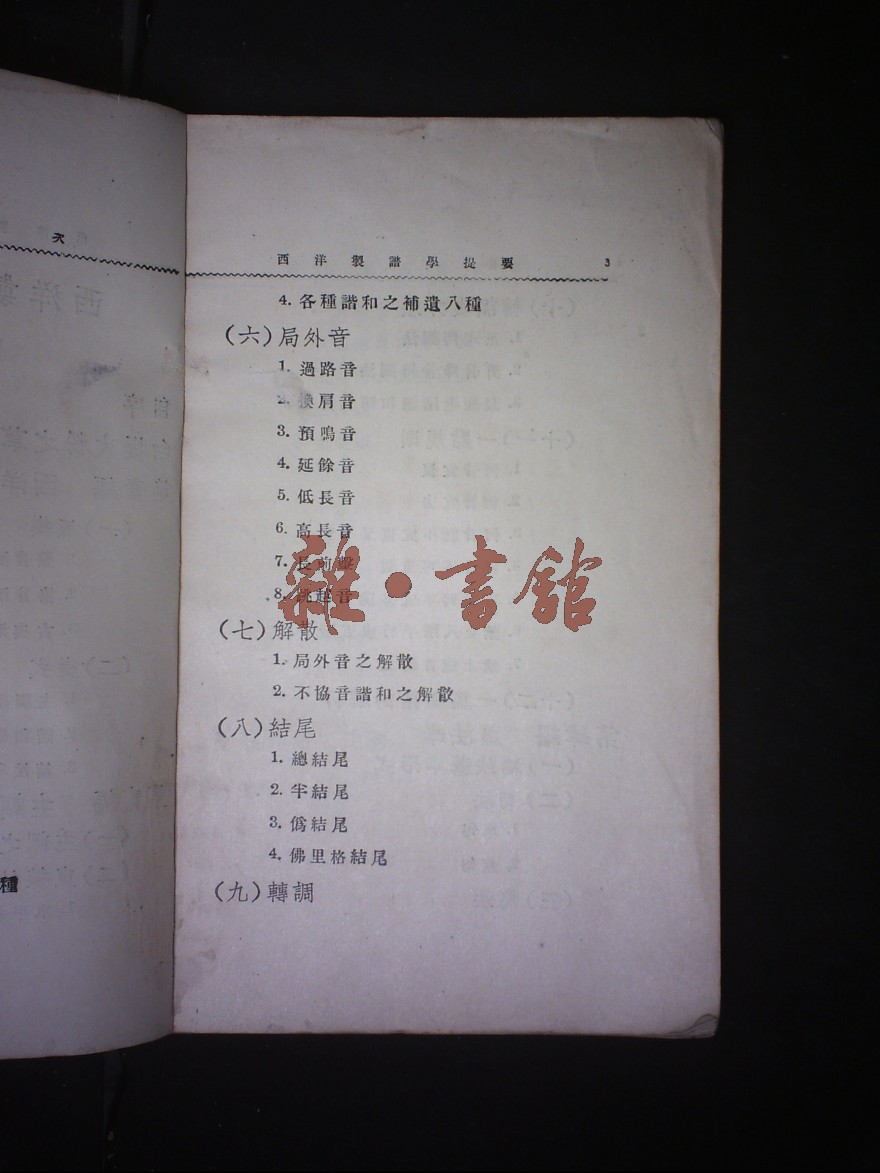 西洋製譜學提要 3
4. 各種諧和之補遺八種
(六)局外音
1. 過路音
2. 換肩音
3. 預鳴音
4. 延餘音
5. 低長音
6. 高長音
7. 長前擊
8. 跳越音
雜·書館
(七)解散
1. 局外音之解散
2. 不協音諧和之解散
(八)結尾
1. 總結尾
2. 半結尾
3. 僞結尾
4. 佛里格結尾
(九)轉調
次
種